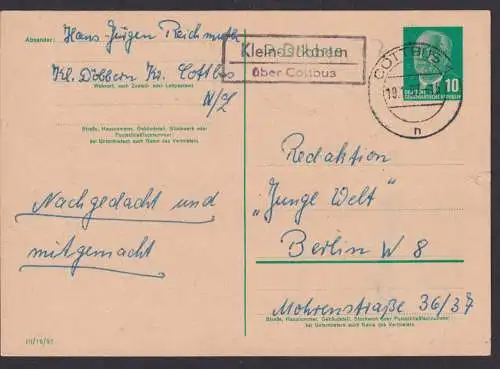 Absender: Hans-Jürgen Reichmuth
Kl. Döbbern Kr. Cottbus
Wohnort, auch Zustell- oder Leitpostamt
N/L
Straße, Hausnummer, Gebäudeteil, Stockwerk oder
Postschließfachnummer;
bei Untermietern auch Name des Vermieters
Postkarte
über Cottbus
COTTBUS
n
DEUTSCHE
DEMOKRATISCHE REPUBLIK
10
Nachgedacht und
mitgemacht
Redaktion
„Junge Welt"
Berlin W 8
Mohrenstraße 36/37
Straße, Hausnummer, Gebäudeteil, Stockwerk oder Postschließfachnummer;
bei Untermietern auch Name des Vermieters
III/18/97